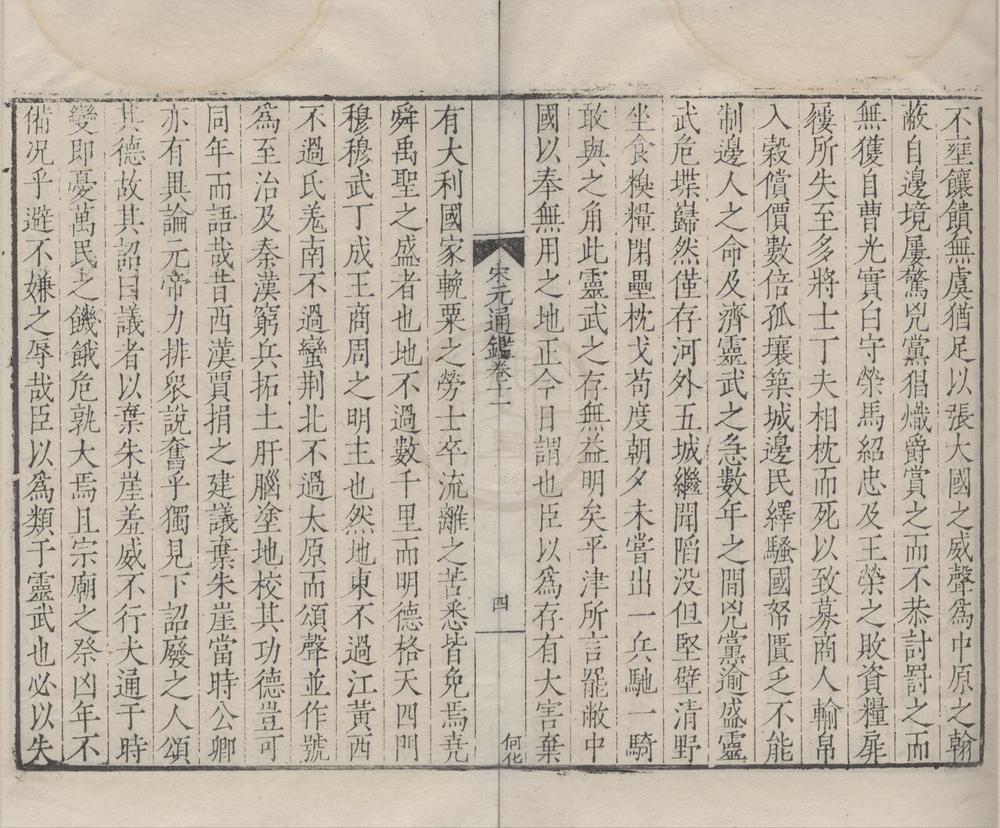 不壅饟饋無虞猶足以張大國之威聲爲中原之翰
蔽自邊境屢驚兇黨猖熾爵賞之而不恭討罰之而
無獲自曹光實白守榮馬紹忠及王榮之敗資糧屝
屨所失至多將士丁夫相枕而死以致募商人輸帛
入穀償價數倍孤壤築城邊民繹騷國帑匱乏不能
制邊人之命及濟靈武之急數年之間兇黨逾盛靈
武危堞巋然僅存河外五城繼聞陷没但堅壁清野
坐食糗糧閉壘枕戈苟度朝夕未嘗出一兵馳一騎
敢與之角此靈武之存無益明矣平津所言罷敝中
國以奉無用之地正今日謂也臣以爲存有大害棄
宋元通鑑卷十二
四
何化
有大利國家輓粟之勞士卒流離之苦悉皆免焉堯
舜禹聖之盛者也地不過數千里而明德格天四門
穆穆武丁成王商周之明主也然地東不過江黃西
不過氐羗南不過蠻荆北不過太原而頌聲並作號
爲至治及秦漢窮兵拓土肝腦塗地校其功德豈可
同年而語哉昔西漢賈捐之建議棄朱崖當時公卿
亦有異論元帝力排衆說奮乎獨見下詔廢之人頌
其德故其詔曰議者以棄朱崖羞威不行夫通于時
變即憂萬民之饑餓危孰大焉且宗廟之祭凶年不
備况乎避不嫌之辱哉臣以爲類于靈武也必以失